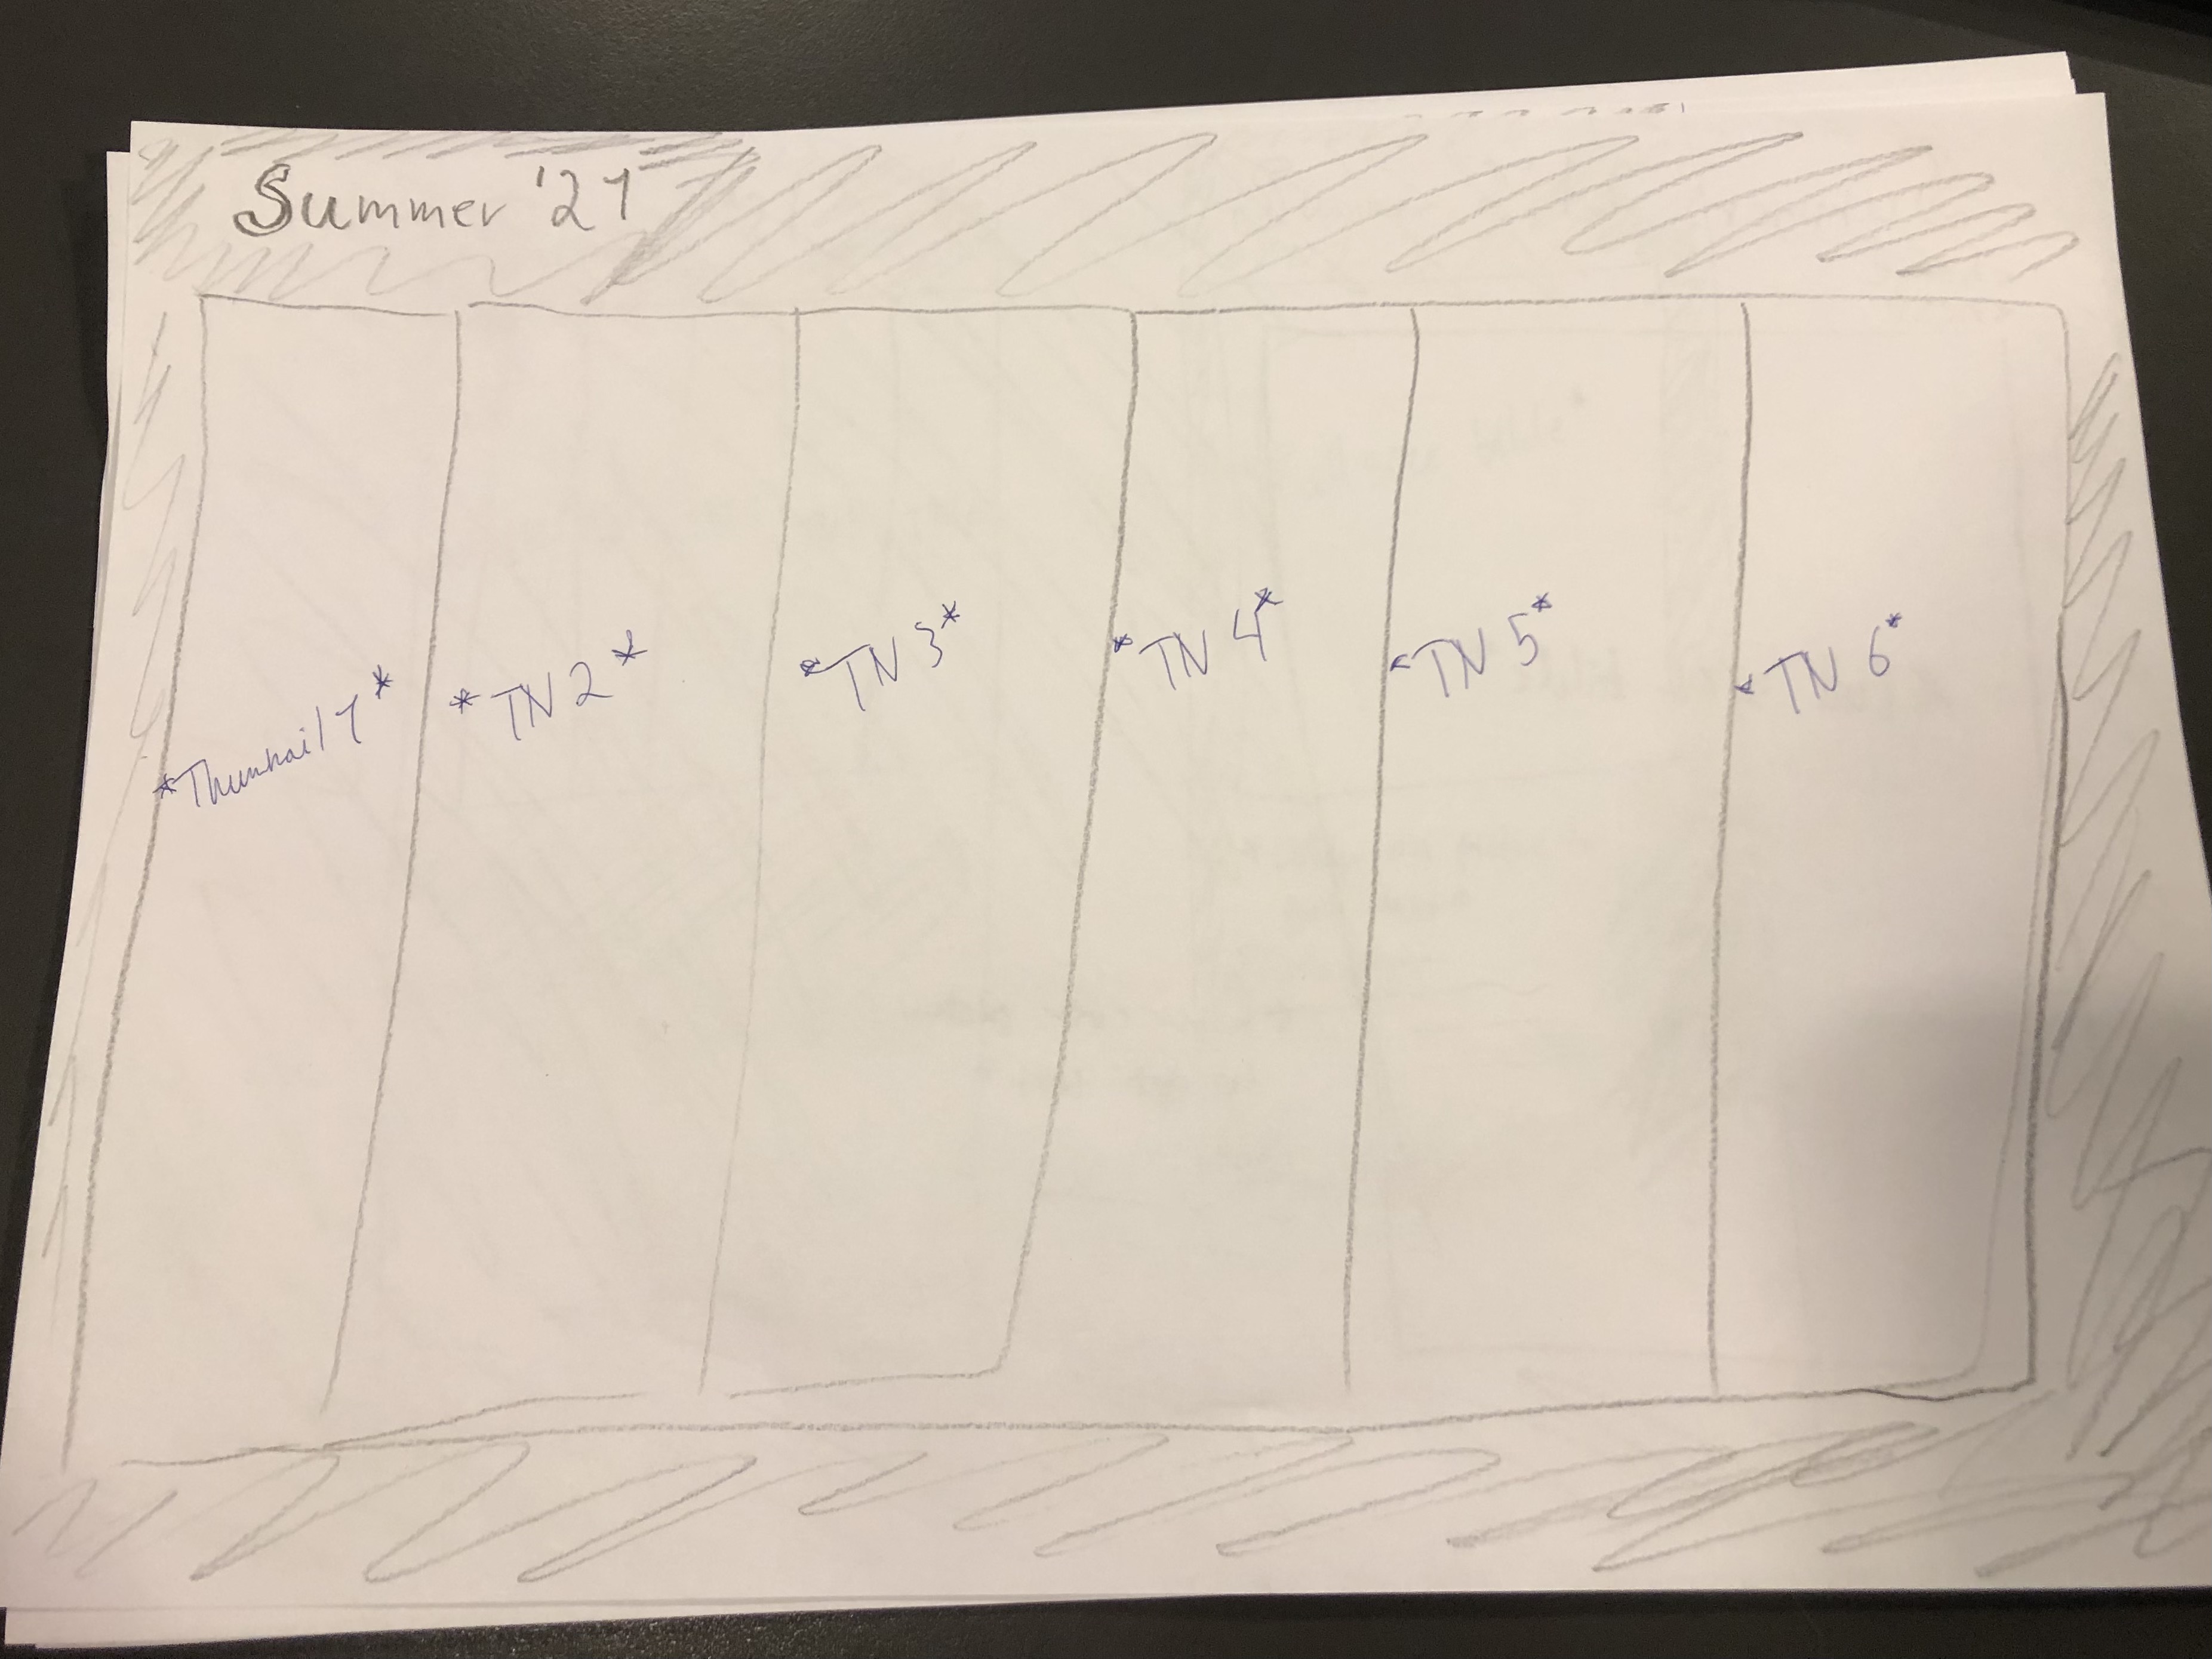 Summer '21
*Thumnail 1*
*TN 2*
*TN 3*
*TN 4*
*TN 5*
*TN 6*